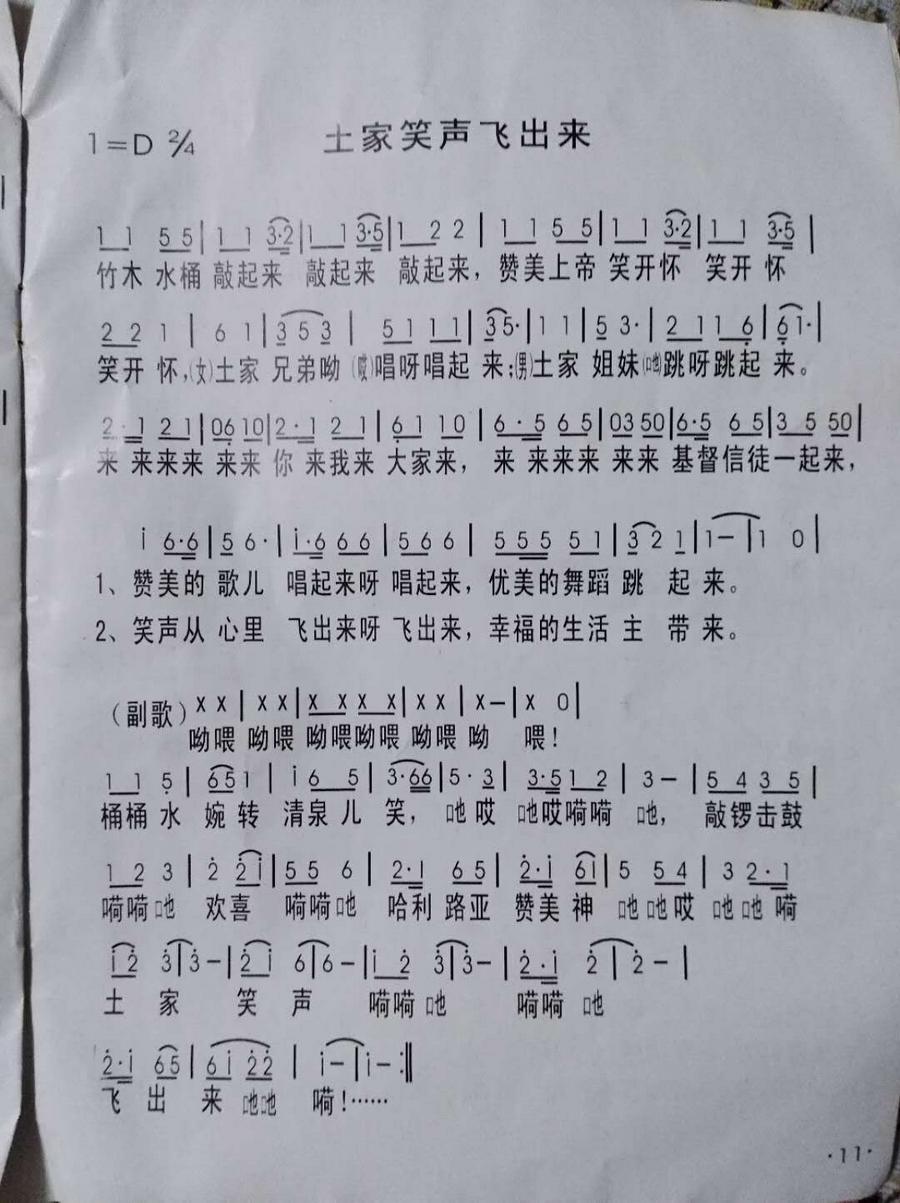 1=D 2/4 土家笑声飞出来
1 1 5 5 | 1 1 3·2 | 1 1 3·5 | 1 2 2 | 1 1 5 5 | 1 1 3·2 | 1 1 3·5 |
竹木 水桶 敲起来 敲起来 敲起来，赞美上帝 笑开怀 笑开 怀
2 2 1 | 6 1 | 3 5 3 | 5 1 1 1 | 3 5· | 1 1 | 5 3· | 2 1 1 6̣ | 6̣ 1· |
笑开 怀，(女)土家 兄弟呦 (哎)唱呀唱起 来；(男)土家 姐妹(吔)跳呀跳起 来。
2·1 2 1 | 0 6̣ 1 0 | 2·1 2 1 | 6̣ 1 1 0 | 6·5 6 5 | 0 3 5 0 | 6·5 6 5 | 3 5 5 0 |
来 来来来 来来 你 来我来 大家来， 来 来来来 来来 基督信徒一起来，
i 6·6 | 5 6· | i·6 6 6 | 5 6 6 | 5 5 5 5 1 | 3 2 1 | 1 — | 1 0 |
1、赞美的 歌儿 唱起来呀 唱起来，优美的舞蹈 跳 起 来。
2、笑声从 心里 飞出来呀 飞出来，幸福的生活 主 带 来。
（副歌）x x | x x | x x x x | x x | x — | x 0 |
呦喂 呦喂 呦喂呦喂 呦喂 呦 喂！
1 1 5̣ | 6 5 1 | i 6 5 | 3·6 6 | 5·3 | 3·5 1 2 | 3 — | 5 4 3 5 |
桶桶 水 婉 转 清泉 儿 笑， 吔 哎 吔哎嗬嗬 吔， 敲锣击鼓
1 2 3 | 2̇ 2̇ i | 5 5 6 | 2̇·i 6 5 | 2̇·i 6 i | 5 5 4 | 3 2·1
嗬嗬吔 欢喜 嗬嗬吔 哈利 路亚 赞美 神 吔 吔哎 吔吔 嗬
i 2̇ 3̇ | 3̇ — | 2̇ i 6 | 6 — | i 2̇ 3̇ | 3̇ — | 2̇·i 2̇ | 2̇ — |
土 家 笑 声 嗬嗬 吔 嗬嗬 吔
2̇·i 6 5 | 6 i 2̇ 2̇ | i — | i — :‖
飞 出 来 吔吔 嗬！……
·11·